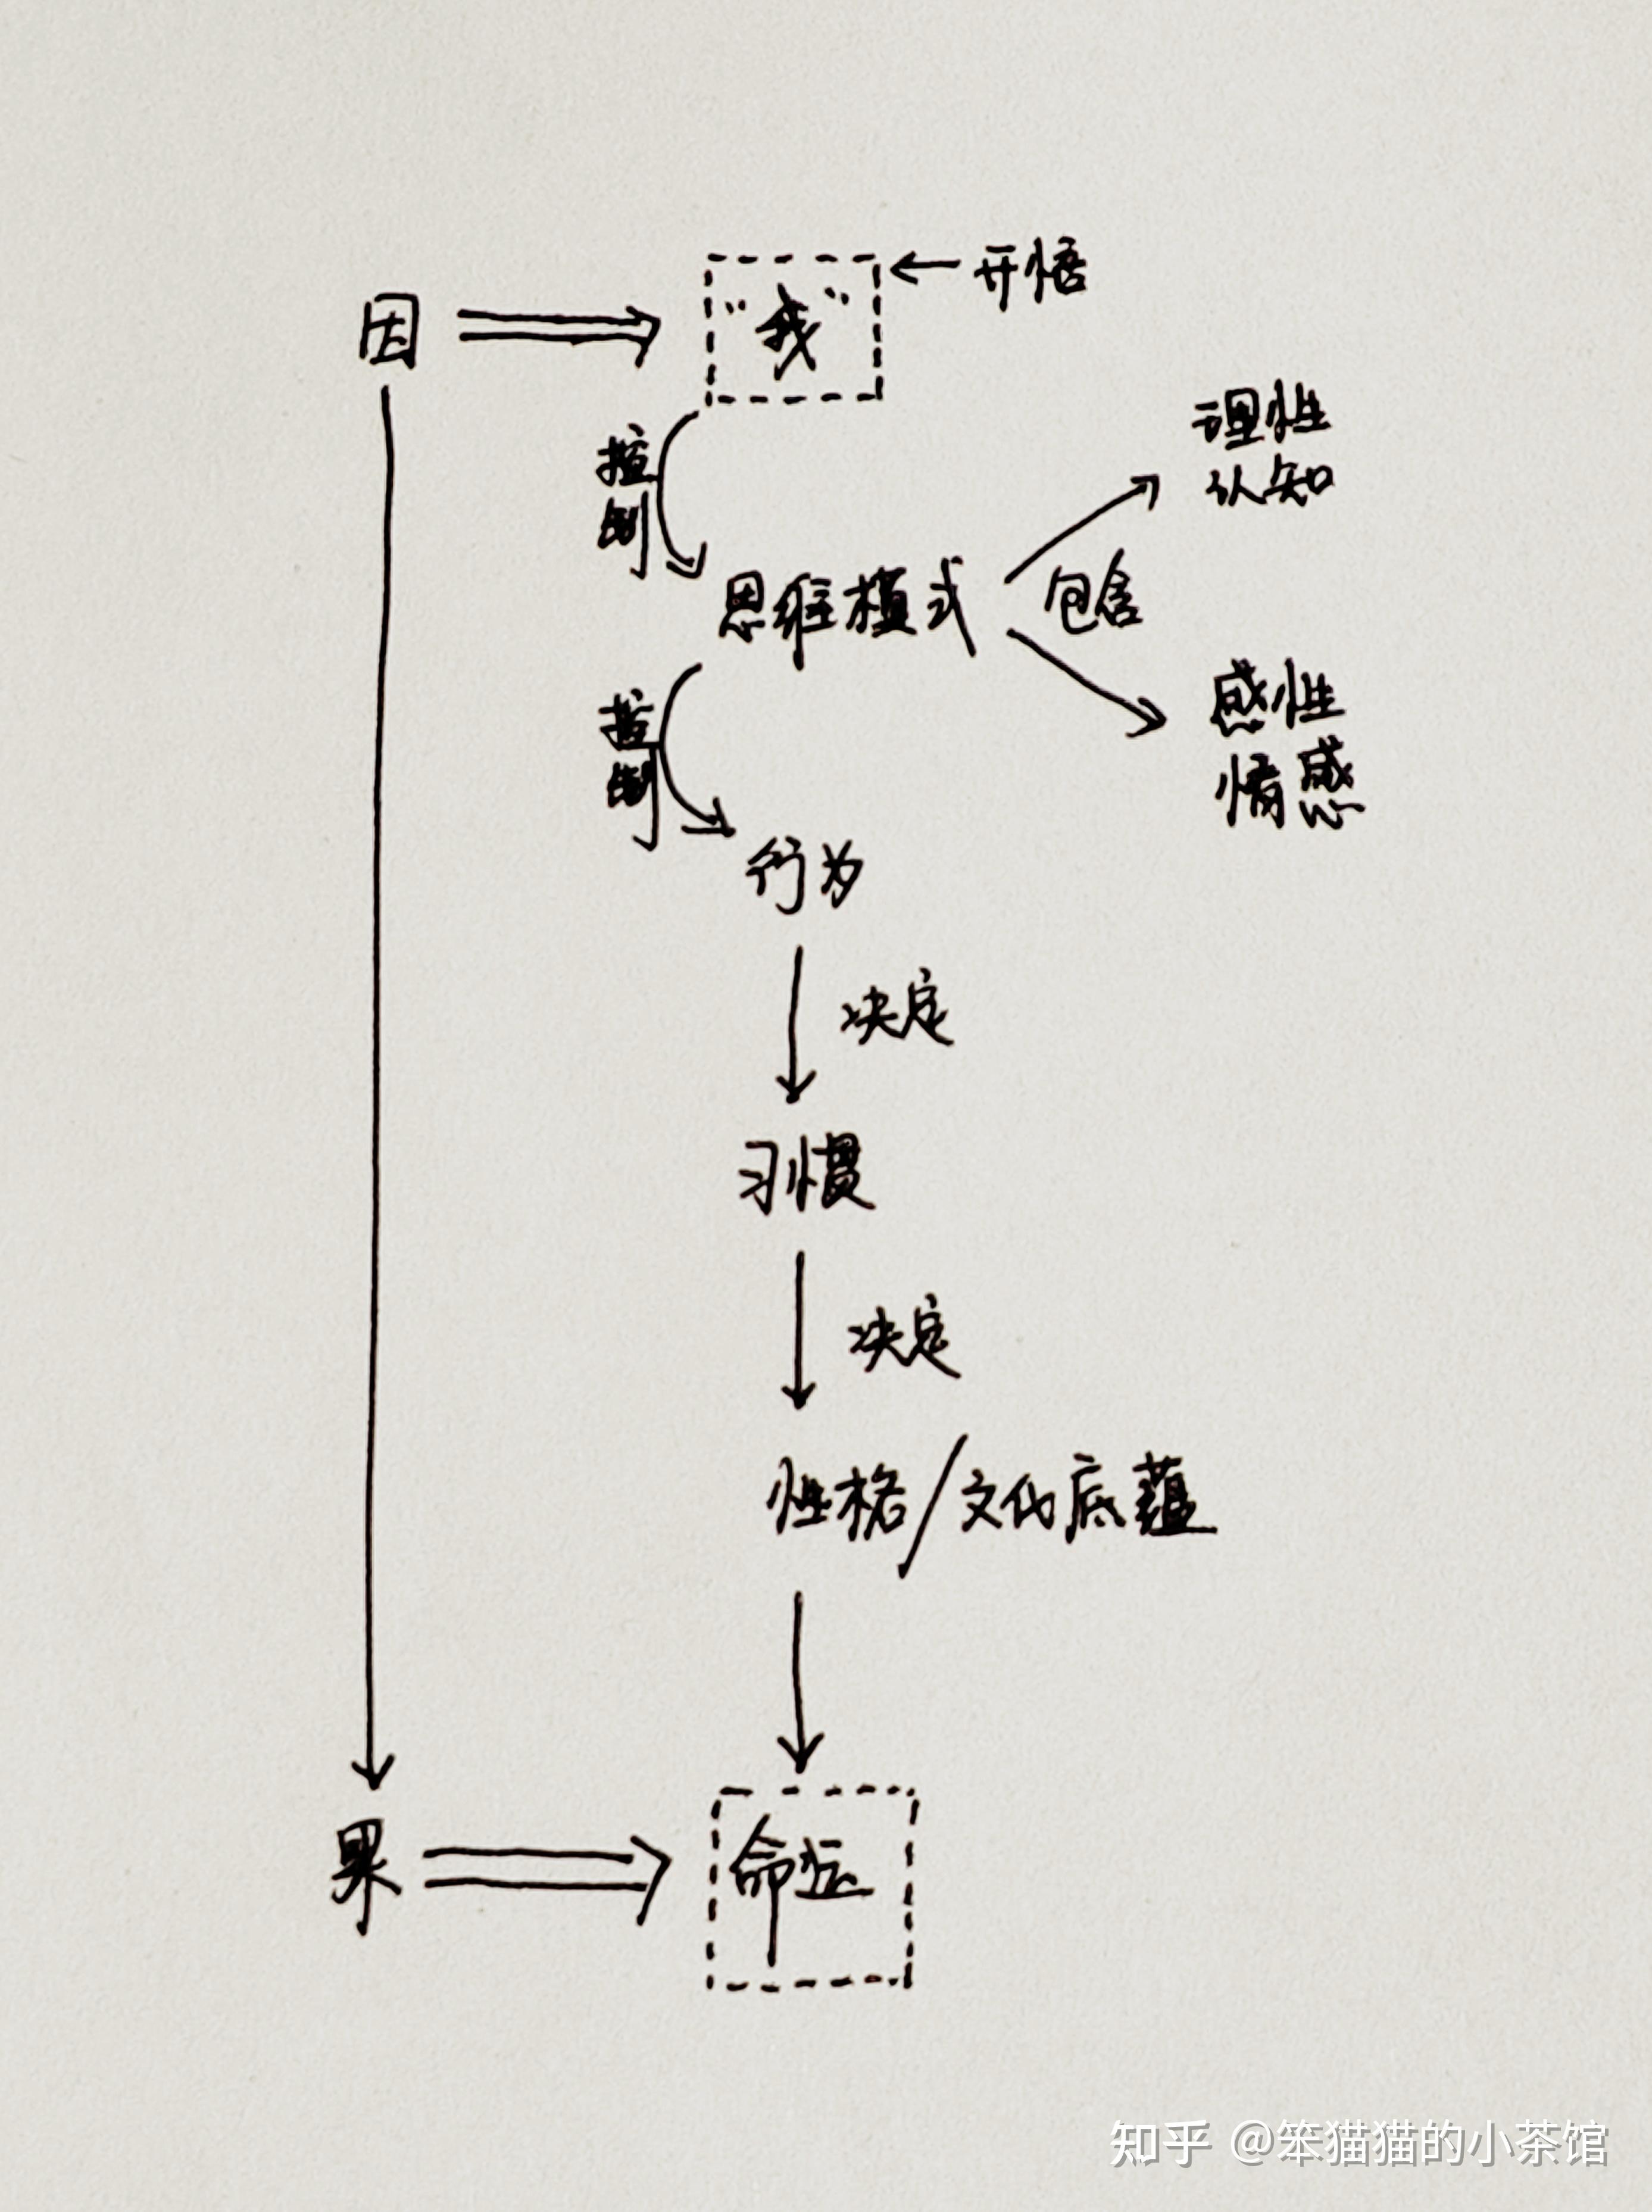 开悟
因
"我"
理性
认知
控
制
思维模式
包含
感性
情感
控
制
行为
决定
习惯
决定
性格/文化底蕴
果
命运
知乎 @笨猫猫的小茶馆